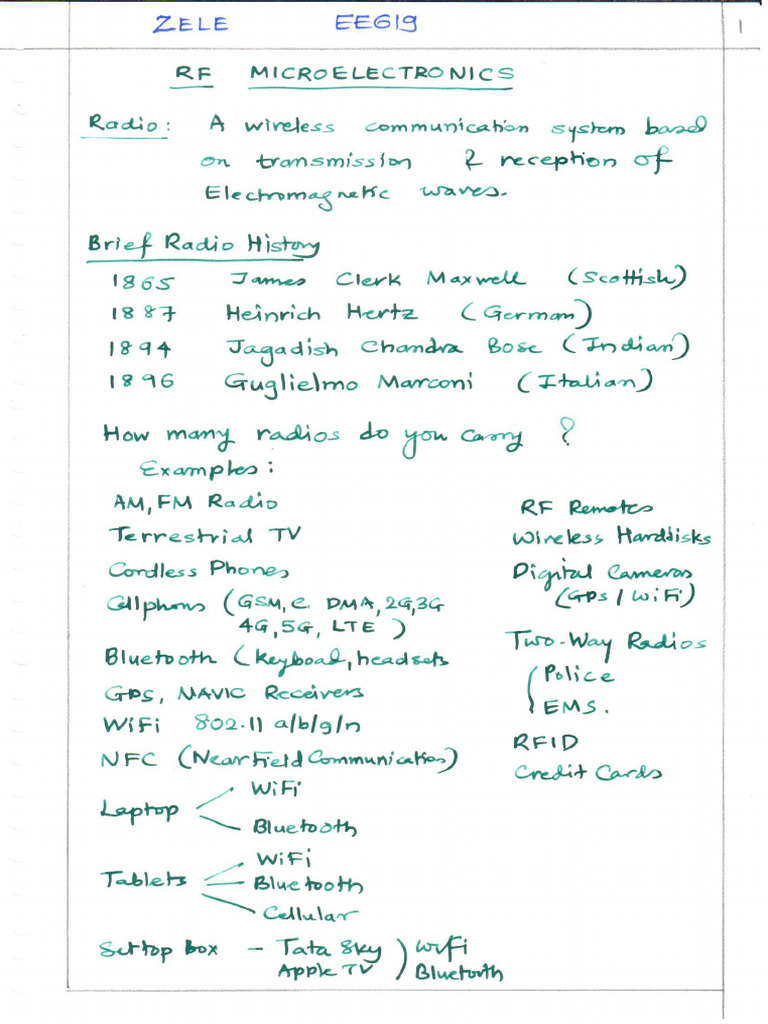 ZELE EE619
1
RF MICROELECTRONICS
Radio: A wireless communication system based
on transmission & reception of
Electromagnetic waves.
Brief Radio History
1865 James Clerk Maxwell (Scottish)
1887 Heinrich Hertz (German)
1894 Jagadish Chandra Bose (Indian)
1896 Guglielmo Marconi (Italian)
How many radios do you carry ?
Examples:
AM, FM Radio
Terrestrial TV
Cordless Phones
Cellphons (GSM, C DMA, 2G, 3G
4G, 5G, LTE )
Bluetooth (keyboad, headsets
GPS, NAVIC Receivers
WiFi 802.11 a/b/g/n
NFC (Near Field Communication)
Laptop
WiFi
Bluetooth
Tablets
WiFi
Bluetooth
Cellular
Settop box - Tata Sky ) WiFi
Apple TV ) Bluetooth
RF Remotes
Wireless Harddisks
Digital Cameras
(GPS / WiFi)
Two-Way Radios
( Police
EMS.
RFID
Credit Cards